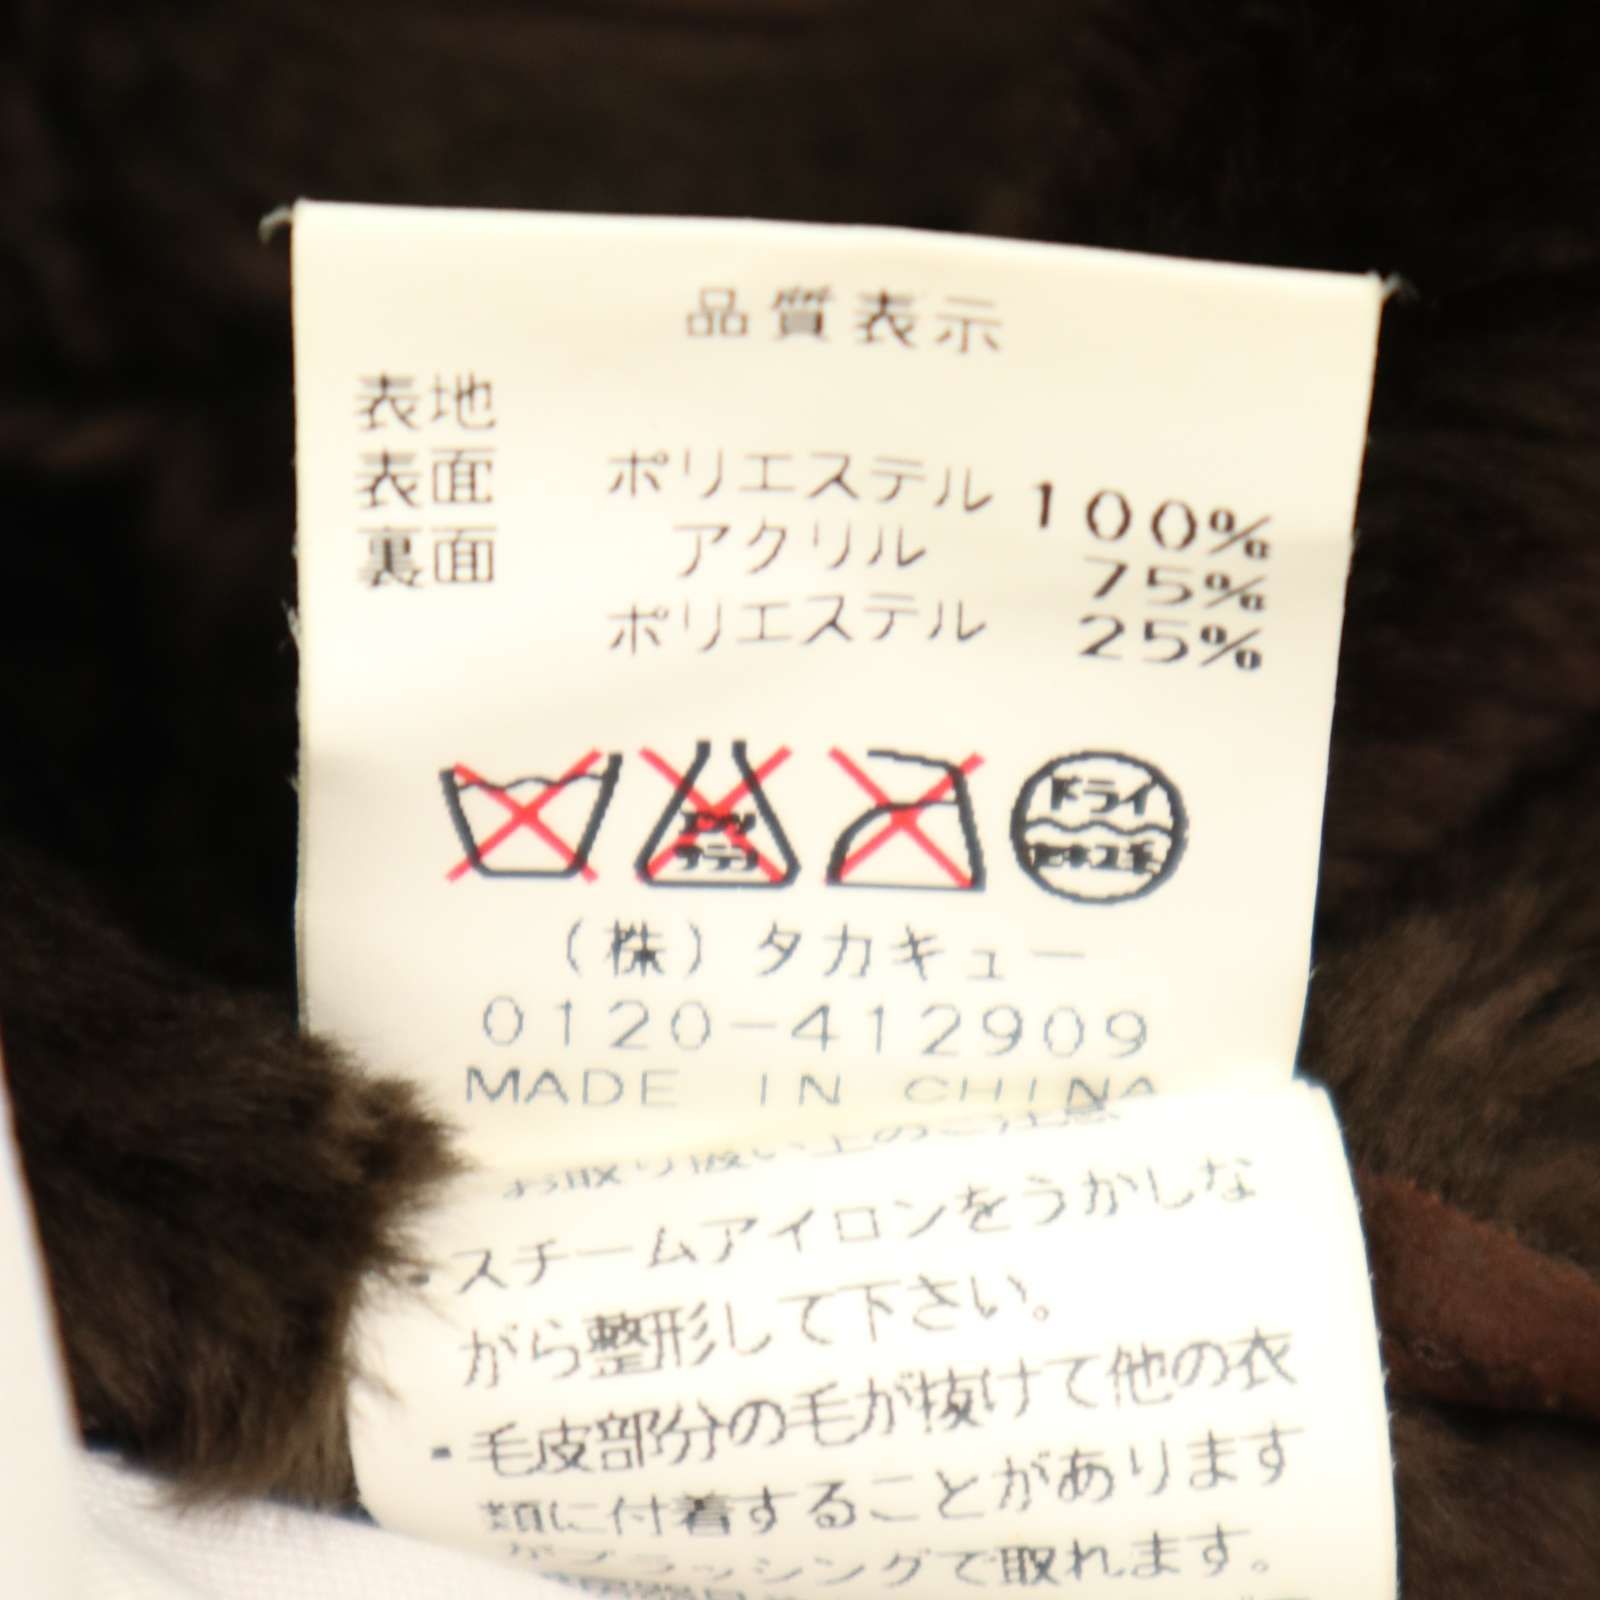 品質表示
表地
表面 ポリエステル 100%
裏面 アクリル 75%
ポリエステル 25%
エンソ
サラシ
ドライ
セキユ系
(株)タカキュー
0120-412909
MADE IN CHINA
お取り扱い上のご注意
・スチームアイロンをうかしな
がら整形して下さい。
・毛皮部分の毛が抜けて他の衣
類に付着することがあります
がブラッシングで取れます。